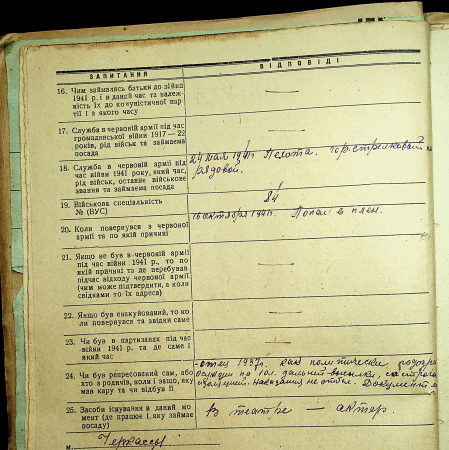 ЗАПИТАННЯ
ВІДПОВІДІ
16. Чим займались батьки до війни
1941 р. і в даний час та належ-
ність їх до комуністичної пар-
тії і з якого часу
—
17. Служба в червоній армії під час
громадянської війни 1917 — 22
років, рід військ та займаєма
посада
—
18. Служба в червоній армії під
час війни 1941 року, який час,
рід військ, останнє військове
звання та займаєма посада
24 мая 1941 г Пехота. горстрелковый
рядовой.
19. Військова спеціальність
№ (ВУС)
84
20. Коли повернувся з червоної
армії та по якій причині
16 октября 1941 г. Попал в плен.
21. Якщо не був в червоній армії
під час війни 1941 р., то по
якій причині та де перебував
підчас відходу червоної армії
(чим може підтвердити, а коли
свідками то їх адреса)
—
22. Якщо був енакуйований, то ко
ли повернувся та звідки саме
—
23. Чи був в партизанах під час
війни 1941 р. та де саме і
який час
—
24. Чи був репресований сам, або
хто з родичів, коли і защо, яку
мав кару та чи відбув її
отец 1937 г. как политически
осужден по дальней высылки, со строго
изоляцией. Наказания не отбыл. Документ
25. Засоби існування в даний мо
мент (де працює і яку займає
посаду)
в театре — актер.
м. Черкассы